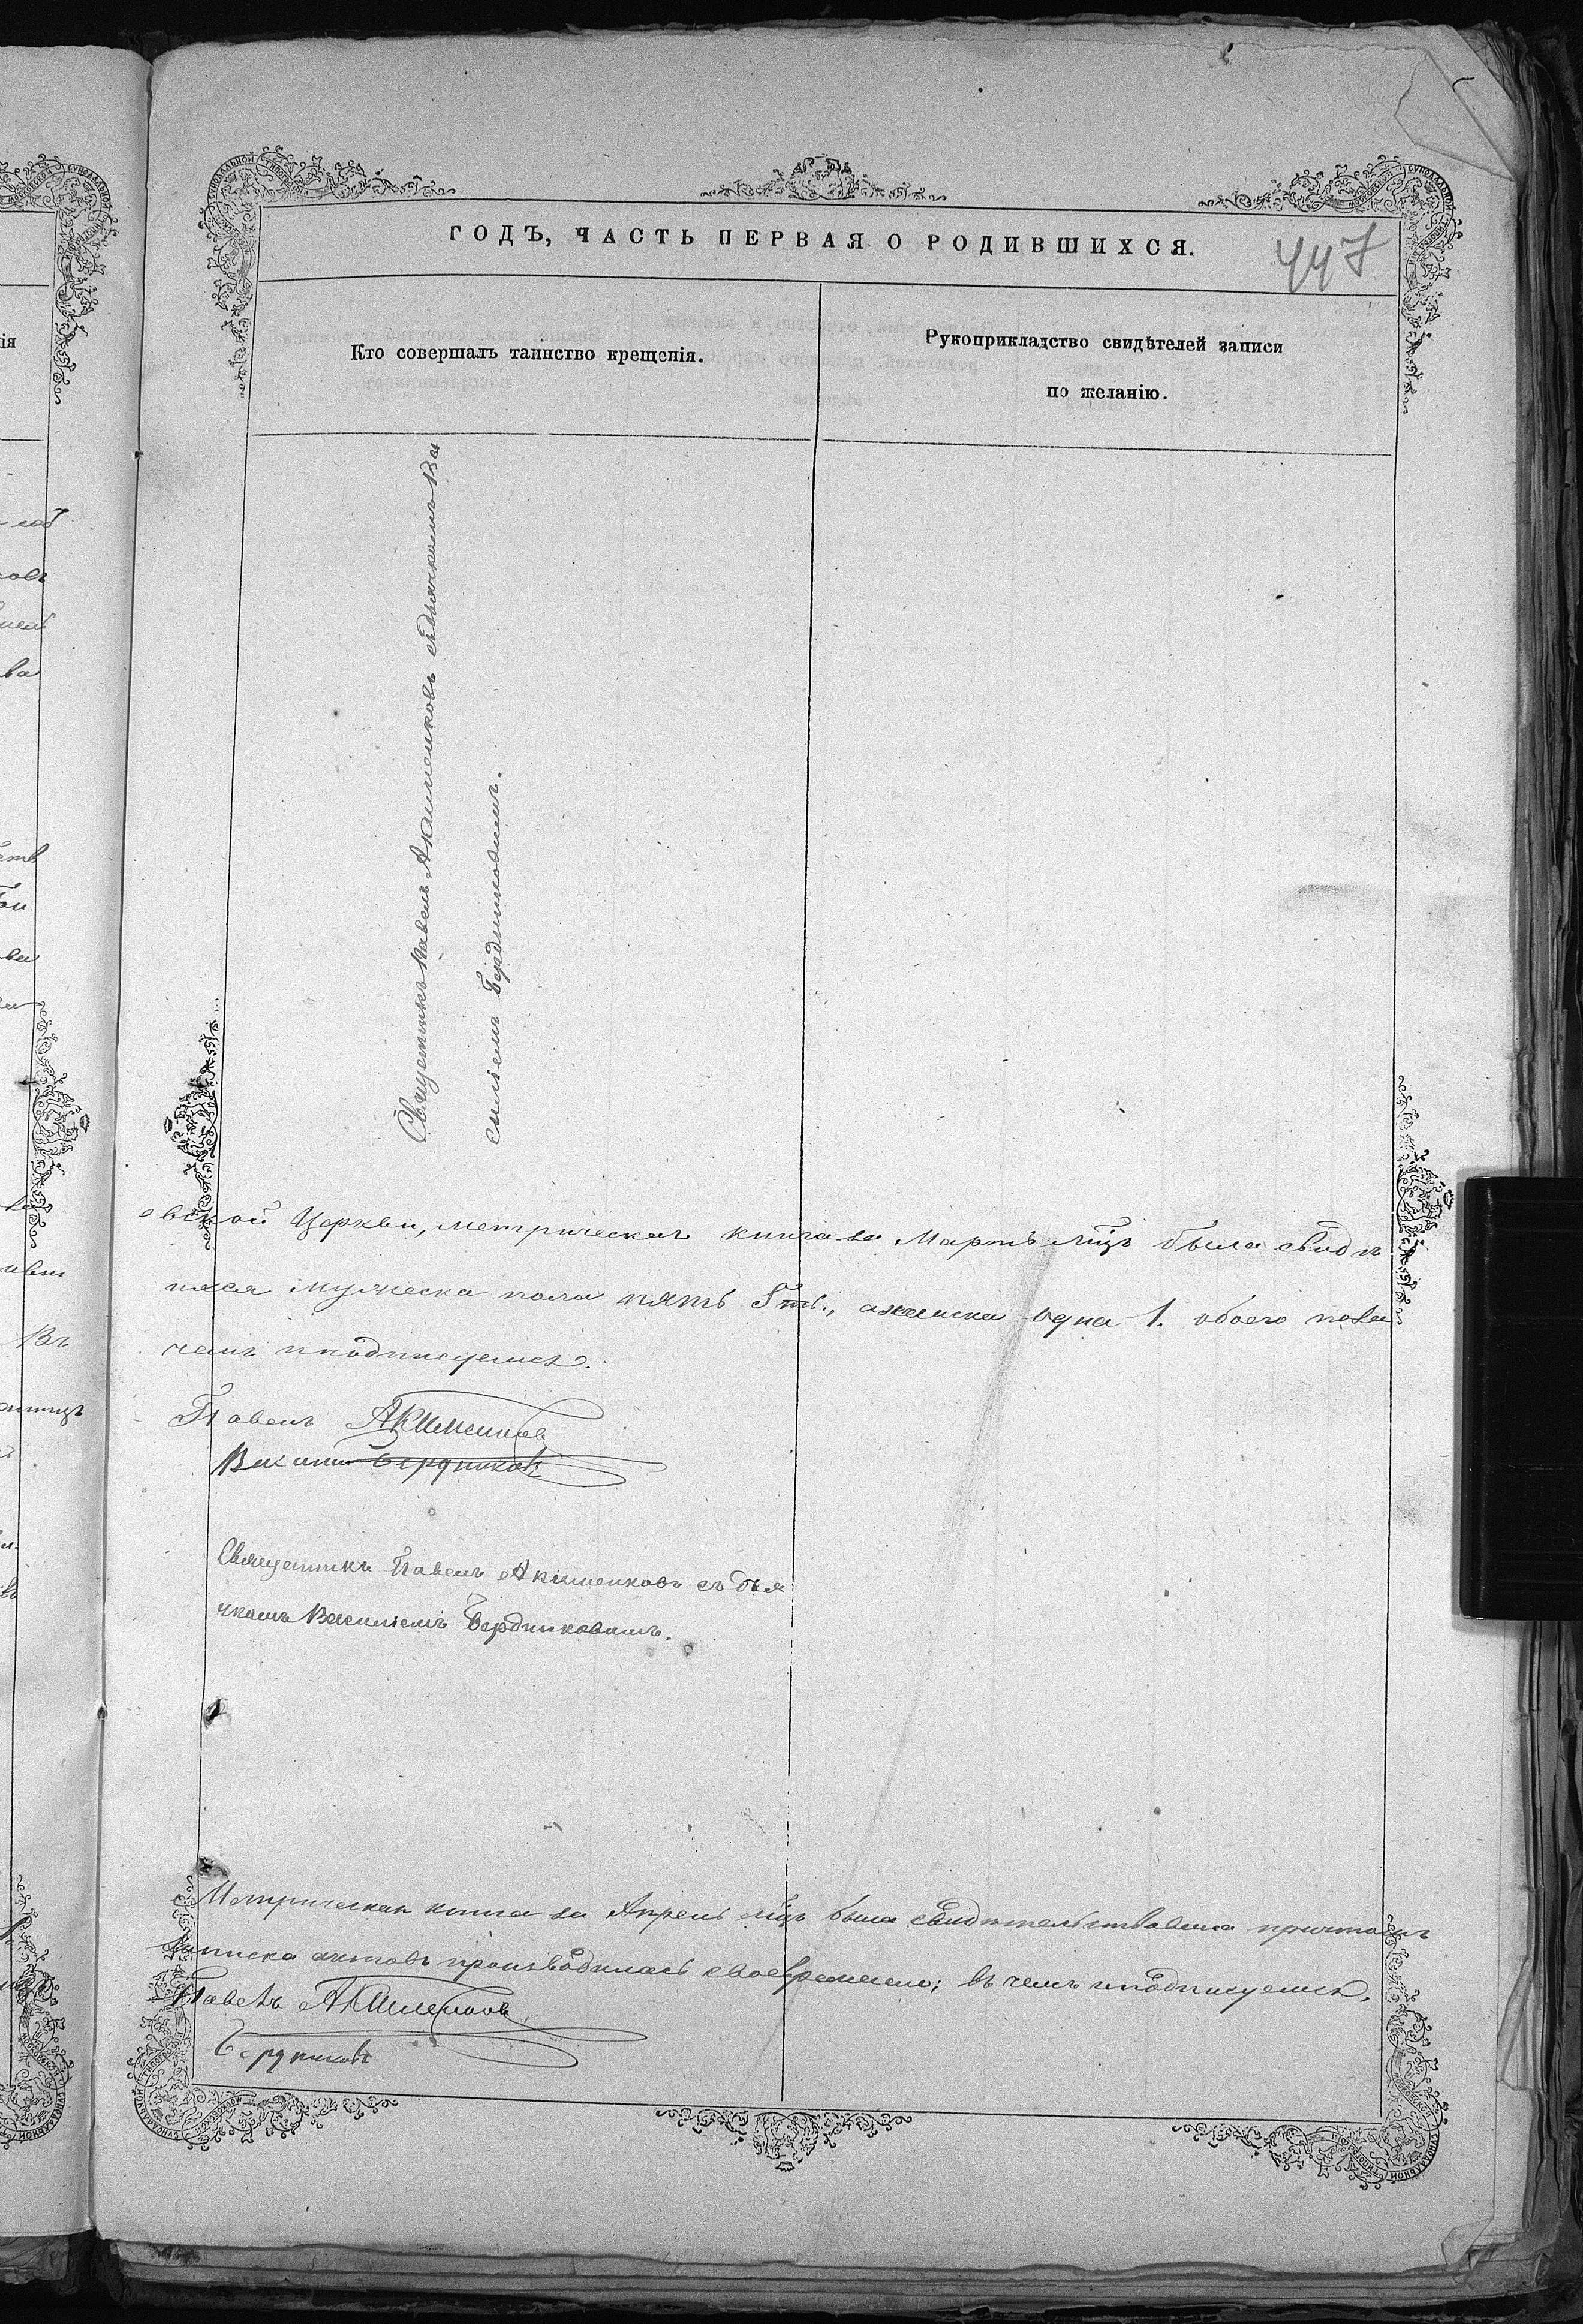 ГОДЪ, ЧАСТЬ ПЕРВАЯ О РОДИВШИХСЯ.
447
Кто совершалъ таинство крещенія.
Рукоприкладство свидѣтелей записи
по желанію.
Священникъ Павелъ Акименковъ съ дьячкомъ Ва
силіемъ Бердниковымъ.
овской Церкви, метрическая книга за Мартъ мцъ была свидѣ
шихся мужеска пола пять 5ть., а женска одна 1. обоего пола
чемъ и подписуемся.
Павелъ Акименковъ
Василій Бердниковъ
Священникъ Павелъ Акименковъ съ дья
чкомъ Василіемъ Бердниковымъ.
Метрическая книга за Апрель мцъ была свидѣтельствована причтомъ
записка актовъ производилась своевременно; въ чемъ и подписуемся.
Павелъ Акименковъ
Бердниковъ